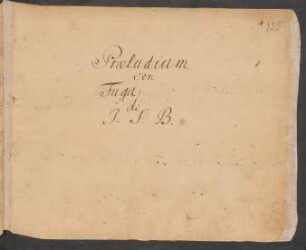 125
Præludium
con
Fuga
di
J. S. B.